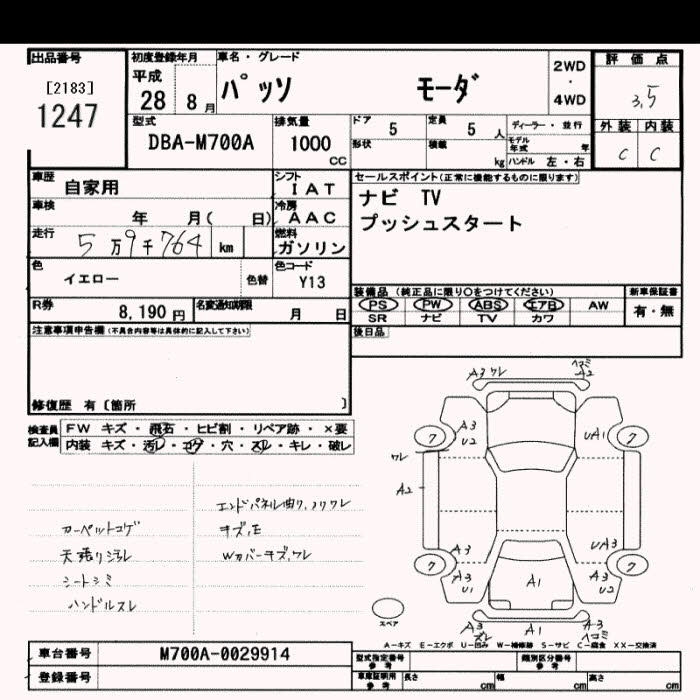 出品番号
[2183]
1247
初度登録年月
平成
28 8月
車名・グレード
パッソ モーダ
2WD
・
4WD
評価点
3,5
外装 内装
C C
型式
DBA-M700A
排気量
1000
CC
ドア 5
定員 5 人
形状
積載 kg
ディーラー・並行
モデル年式 年
ハンドル 左・右
車歴 自家用
シフト IAT
車検 年 月( 日)
冷房 AAC
走行 5万9千764 km
燃料 ガソリン
色 イエロー
色替
色コード Y13
R券 8,190円
名変通知期限 月 日
セールスポイント(正常に機能するものに限ります)
ナビ TV
プッシュスタート
装備品 (純正品に限り○をつけてください)
PS PW ABS エアB AW
SR ナビ TV カワ
新車保証書
有・無
後日品
注意事項申告欄(不具合内容等は具体的に記入して下さい)
修復歴 有〔箇所 〕
検査員記入欄
FW キズ・飛石・ヒビ割・リペア跡・×要
内装 キズ・汚レ・コゲ・穴・スレ・キレ・破レ
エンドパネル曲り、ワレ
カーペットコゲ キズ、E
天張り汚レ Wカバーキズ、ワレ
シートシミ
ハンドルスレ
A3ワレ
ヘコミ
A2
7
A3
U2
UA1
7
ワレ
A2
A3
UA3
7
A3
U1
A1
A3
U2
7
スペア
A3
スレ
A1
A3
ヘコミ
A-キズ E-エクボ U-凹み W-補修跡 S-サビ C-腐食 XX-交換済
車台番号 M700A-0029914
登録番号
型式指定番号
参考
類別区分番号
参考
車庫証明用
参考
長さ cm
幅 cm
高さ cm